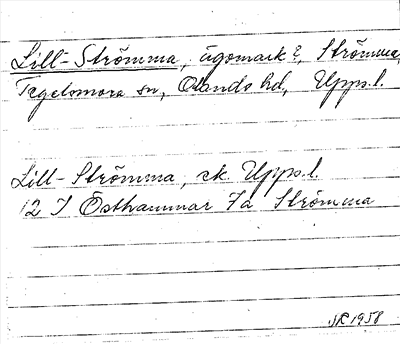 Lill-Strömma, ägomark?, Strömma,
Tegelsmora sn, Olands hd, Upps.l.
Lill-Strömma, ek. Upps.l.
12 I Östhammar 7a Strömma
1958